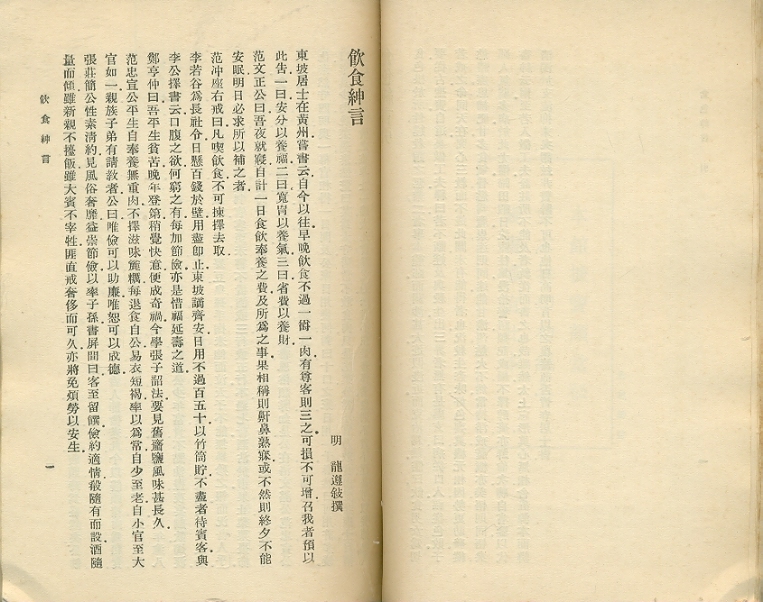 飲食紳言
明 龍遵敍撰
東坡居士在黃州嘗書云自今以往早晚飲食不過一爵一肉有尊客則三之可損不可增召我者預以
此告一曰安分以養福二曰寬胃以養氣三曰省費以養財
范文正公曰吾夜就寢自計一日食飲奉養之費及所爲之事果相稱則鼾鼻熟寐或不然則終夕不能
安眠明日必求所以補之者
范冲座右戒曰凡喫飲食不可揀擇去取
李若谷爲長社令日懸百錢於壁用盡卽止東坡謫齊安日用不過百五十以竹筒貯不盡者待賓客與
李公擇書云口腹之欲何窮之有每加節儉亦是惜福延壽之道
鄭亨仲曰吾平生貧苦晚年登第稍覺快意便成奇禍今學張子韶法要見舊齏鹽風味甚長久
范忠宣公平生自奉養無重肉不擇滋味麤糲每退食自公易衣短褐率以爲常自少至老自小官至大
官如一親族子弟有請敎者公曰唯儉可以助廉唯恕可以成德
張莊簡公性素淸約見風俗奢靡益崇節儉以率子孫書屏間曰客至留饌儉約適情殽隨有而設酒隨
量而傾雖新親不擡飯雖大賓不宰牲匪直戒奢侈而可久亦將免煩勞以安生
飲食紳言
一